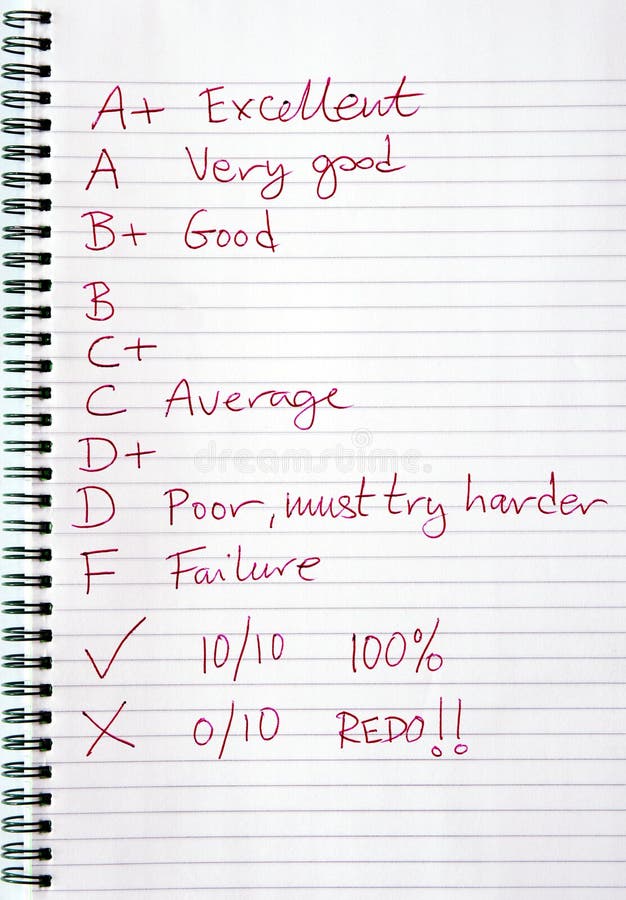 A+ Excellent
A Very good
B+ Good
B
C+
C Average
D+
dreamstime.
D Poor, must try harder
F Failure
✓ 10/10 100%
X 0/10 REDO!!